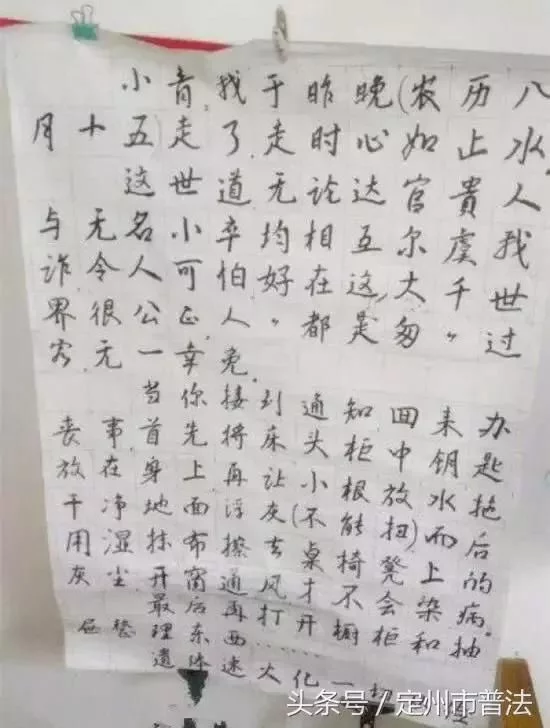 小青,找于昨晚(农历八
月十五)走了走时心如止水,
这世道无论达官貴人
与无名小卒均相互尔虞我
诈.令人可怕.好在这大千世
界很公正,“人”都是匆匆过
客.无一幸免.
当你接到通知回来办
丧事首先将床头柜中钥匙
放在身上再让小根放水拖
干净地面浮灰(不能扭)而后
用湿抹布擦去桌椅凳上的
灰尘开窗通风才不会染病.
最后再打开橱柜和抽
理东西……
遗体速火化一
头条号/定州市普法